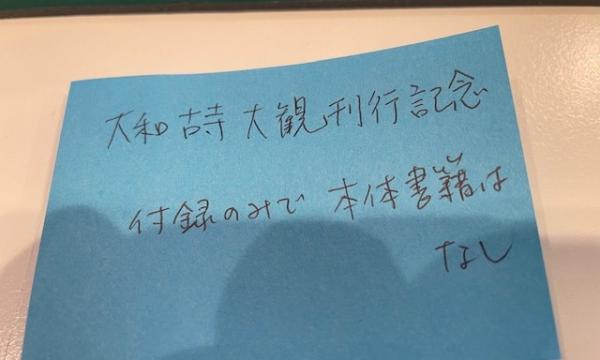 大和古寺大観刊行記念
付録のみで 本体書籍は
なし